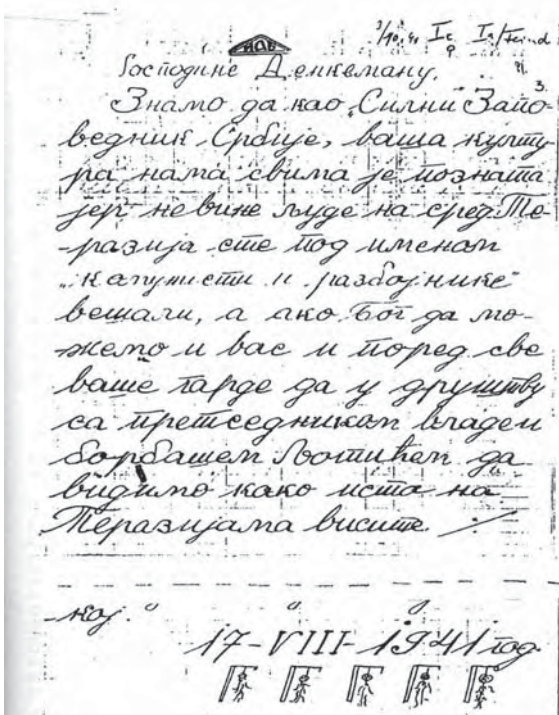 НОВ
3/10.41 Ic Ia/Feind
Господине Денкеману,
Знамо да као „Силни Запо-
ведник Србије, ваша култу
ра нама свима је позната
јер невине људе на сред Те-
-разија сте под именом
„капунисти и разбојнике"
вешали, а ако Бог да мо-
жемо и вас и поред све
ваше гарде да у друштву
са претседником владем
борбашем Љотићем да
видимо како иста на
Теразијама висите.
-кој.
17-VIII-1941 год.